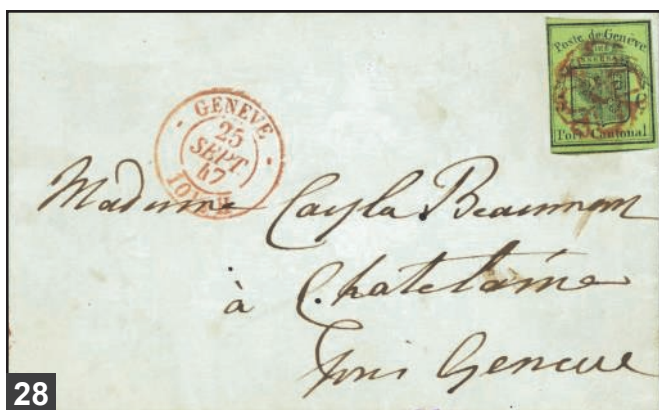 Poste de Genève
Port Cantonal
GENEVE
25
SEPT
47
Madame Cayla Beaumont
à Chatelaine
Genève
28